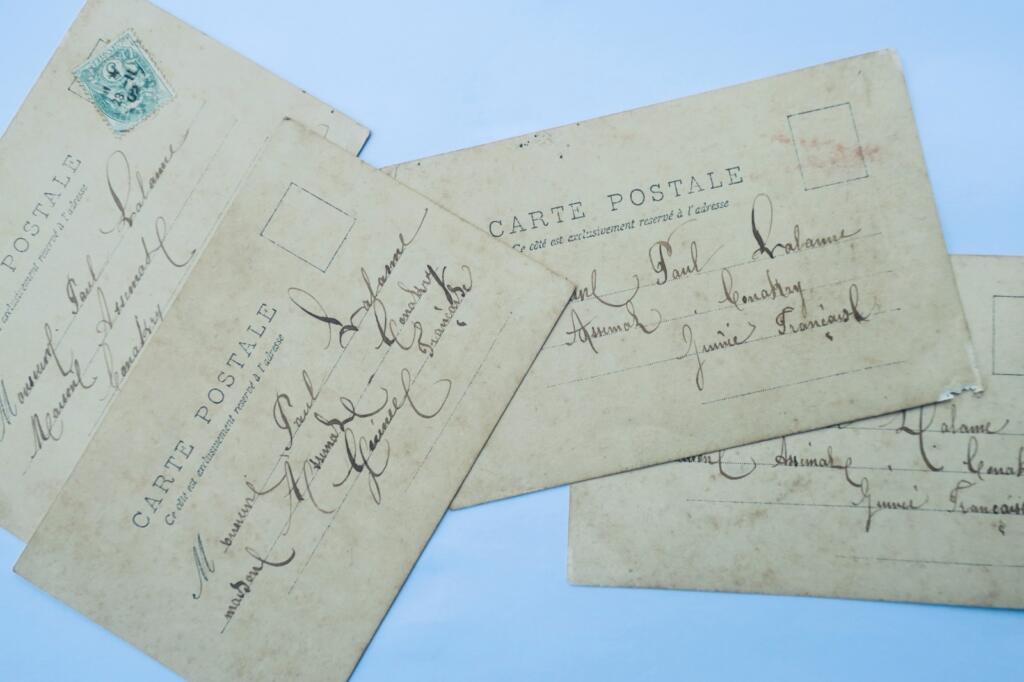 POSTALE
exclusivement réservé à l'adresse
Monsieur Paul Lalanne
Maison Assimat
Conakry
CARTE POSTALE
Ce côté est exclusivement réservé à l'adresse
Monsieur Paul Lalanne
maison Assimat Conakry
Guinée Française
CARTE POSTALE
Ce côté est exclusivement réservé à l'adresse
Paul Lalanne
Assimat Conakry
Guinée Française
Lalanne
Assimat Conak
Guinée Français